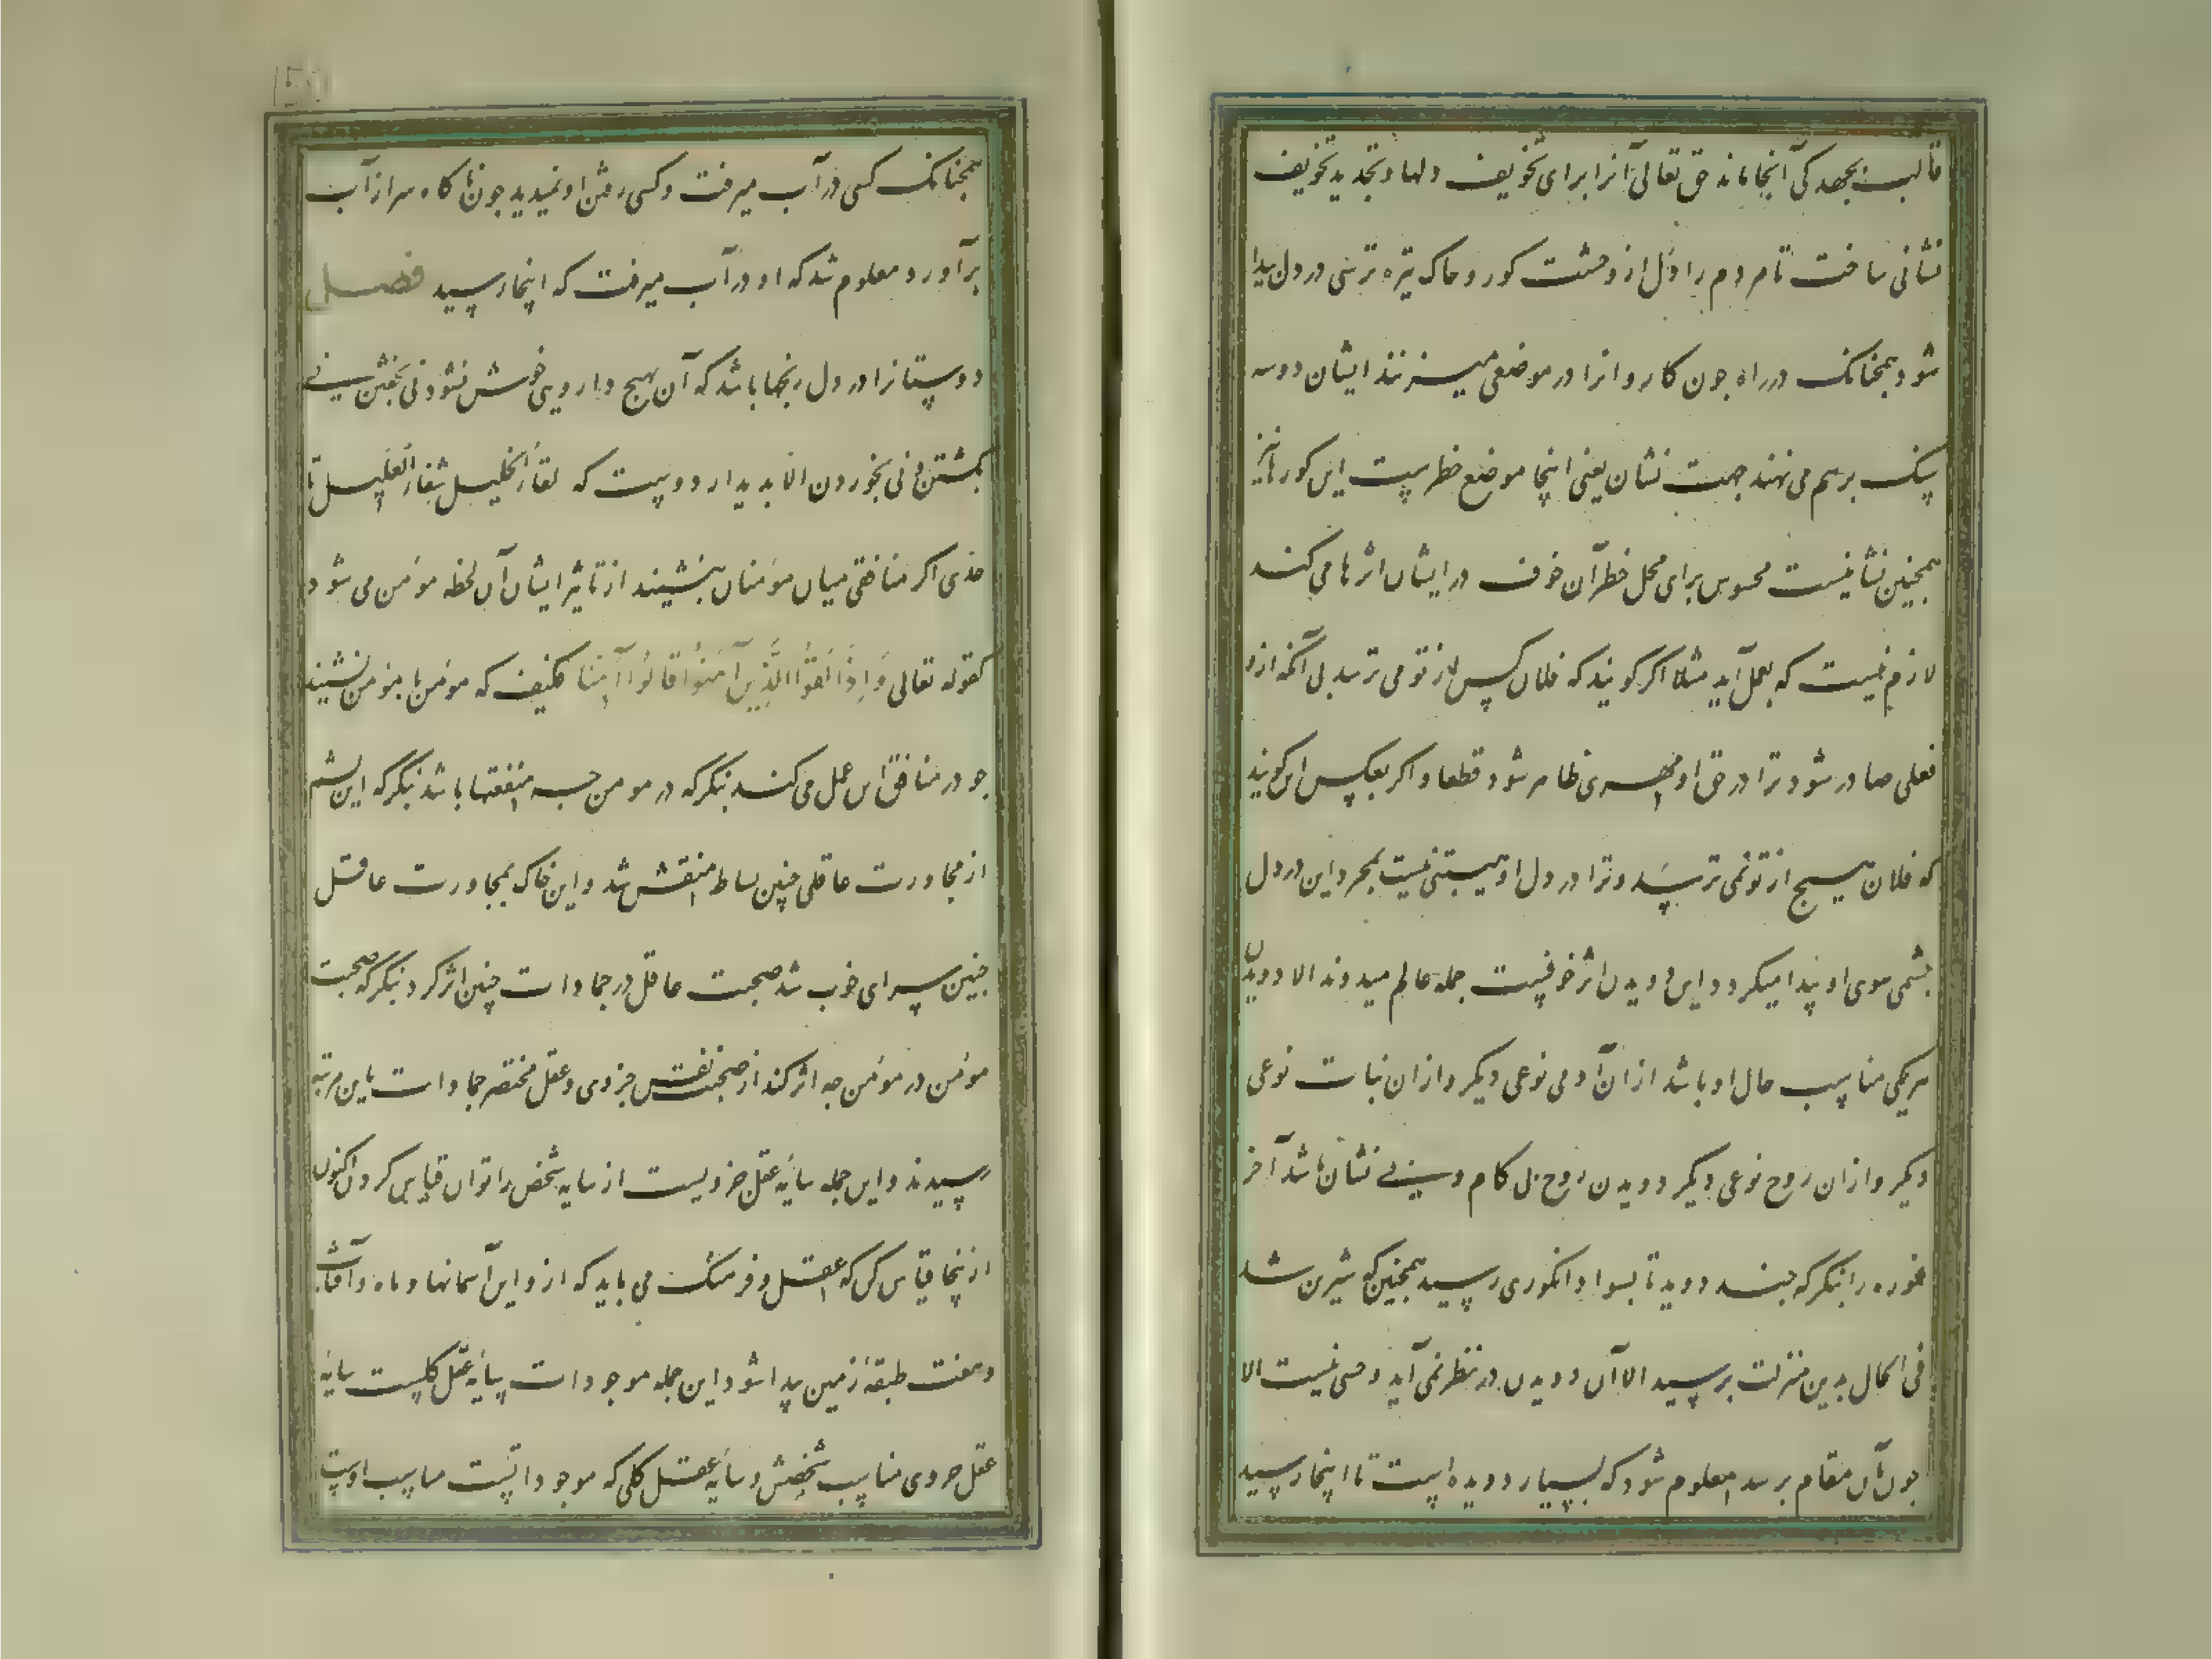 قالب بجهد کی آنجا ماند حق تعالی آنرا برای تخویف دلها و تجدید تخویف
نشانی ساخت تا مردم را دل از وحشت کور و خاک تیره ترسی در دل پیدا
شود همچنانک در راه جون کاروانرا در موضعی میزنند ایشان دو سه
سنک برهم می نهند جهت نشان یعنی اینجا موضع خطرست این کورها نیز
همچنین نشانیست محسوس برای محل خطر آن خوف در ایشان اثرها می کند
لازم نیست که بعمل آید مثلا اکر کویند که فلان کس از تو می ترسد بی آنکه ازو
فعلی صادر شود ترا در حق او مهری ظاهر شود قطعا و اکر بعکس این کویند
که فلان هیچ از تو نمی ترسد و ترا در دل او هیبتی نیست بمجرد این در دل
خشمی سوی او پیدا میکردد این دویدن اثر خوفست جمله عالم میدوند الا دویدن
هریکی مناسب حال او باشد از ان آدمی نوعی دیکر و از ان نبات نوعی
دیکر و ازان روح نوعی دیکر دویدن روح بی کام و بی نشان باشد آخر
غوره را بنکر که جند دوید تا بسواد انکوری رسید همچنین که شیرین شد
فی الحال بدین منزلت برسید الا آن دویدن در نظر نمی آید و حسی نیست الا
جون بان مقام برسد معلوم شود که بسیار دویده است تا اینجا رسید
همچنانک کسی در آب میرفت و کسی رفتن او نمیدید جون ناکاه سر از آب
برآورد معلوم شد که او در آب میرفت که اینجا رسید فصل
دوستانرا در دل رنجها باشد که آن بهیچ داروی خوش نشود نی بخفتن نی
بکشتن و نی بخوردن الا بدیدار دوست که لقاء الخلیل شفاء العلیل تا
حدی اکر منافقی میان مؤمنان بنشیند از تاثیر ایشان آن لحظه مؤمن می شود
کقوله تعالی وَاِذَا لَقُوا الَّذِینَ آمَنُوا قَالُوا آمَنَّا فکیف که مؤمن با مؤمن بنشیند
جو در منافق این عمل می کند بنکر که در مومن جه منفعتها باشد بنکر که این پشم
از مجاورت عاقلی چنین بساط منقش شد و این خاک بمجاورت عاقل
جنین سرای خوب شد صحبت عاقل در جمادات چنین اثر کرد بنکر که صحبت
مؤمن در مؤمن جه اثر کند از صحبت نفس جزوی و عقل مختصر جمادات باین مرتبه
رسیدند و این جمله سایه عقل جزویست از سایه شخص را توان قیاس کردن اکنون
ازینجا قیاس کن که عقل و فرهنک می باید که ازو این آسمانها و ماه و آفتاب
و هفت طبقه زمین پیدا شود این جمله موجودات سایه عقل کلیست سایه
عقل جزوی مناسب شخصش و سایه عقل کلی که موجوداتست مناسب اوست